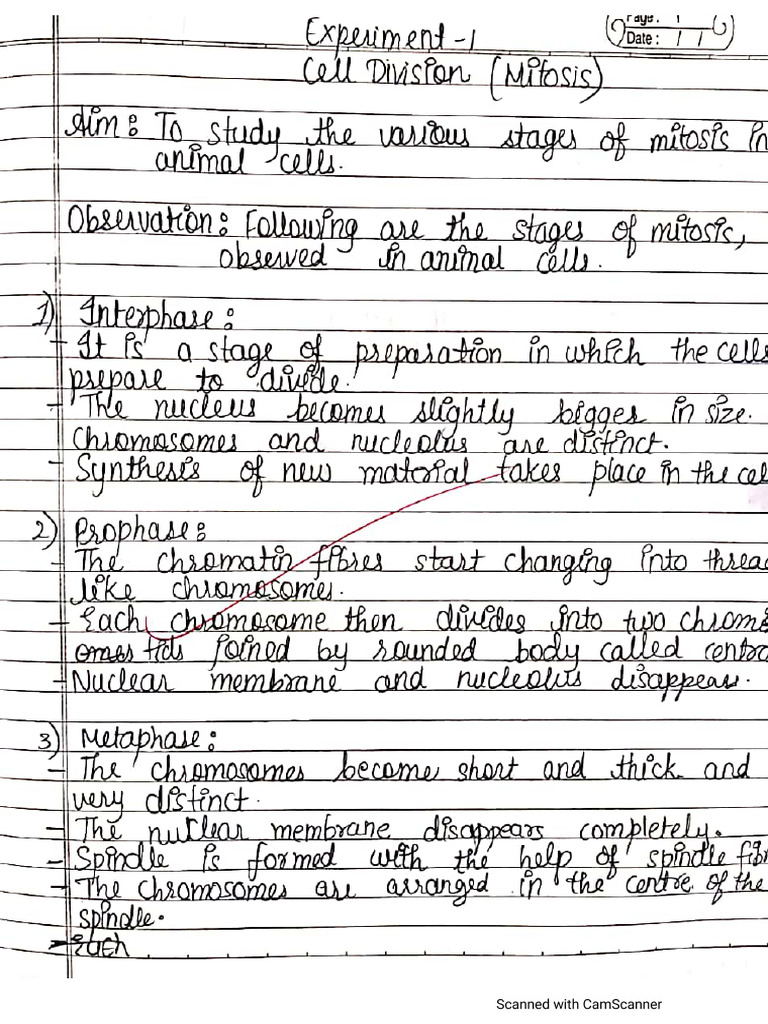 Experiment-1
Page: 1
Date: / /
Cell Division (Mitosis)
Aim: To study the various stages of mitosis in
animal cells.
Observation: Following are the stages of mitosis,
observed in animal cells.
1) Interphase:
- It is a stage of preparation in which the cells
prepare to divide.
- The nucleus becomes slightly bigger in size.
Chromosomes and nucleolus are distinct.
- Synthesis of new material takes place in the cel
2) Prophase:
- The chromatin fibres start changing into threa
like chromosomes.
- Each chromosome then divides into two chrom
tids joined by rounded body called centro
- Nuclear membrane and nucleolus disappear.
3) Metaphase:
- The chromosomes become short and thick and
very distinct.
- The nuclear membrane disappears completely.
- Spindle is formed with the help of spindle fib
- The chromosomes are arranged in the centre of the
spindle.
- Each
Scanned with CamScanner